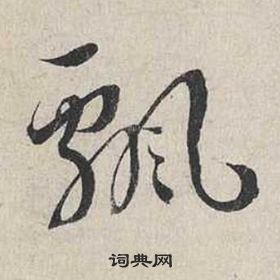 飘
词典网